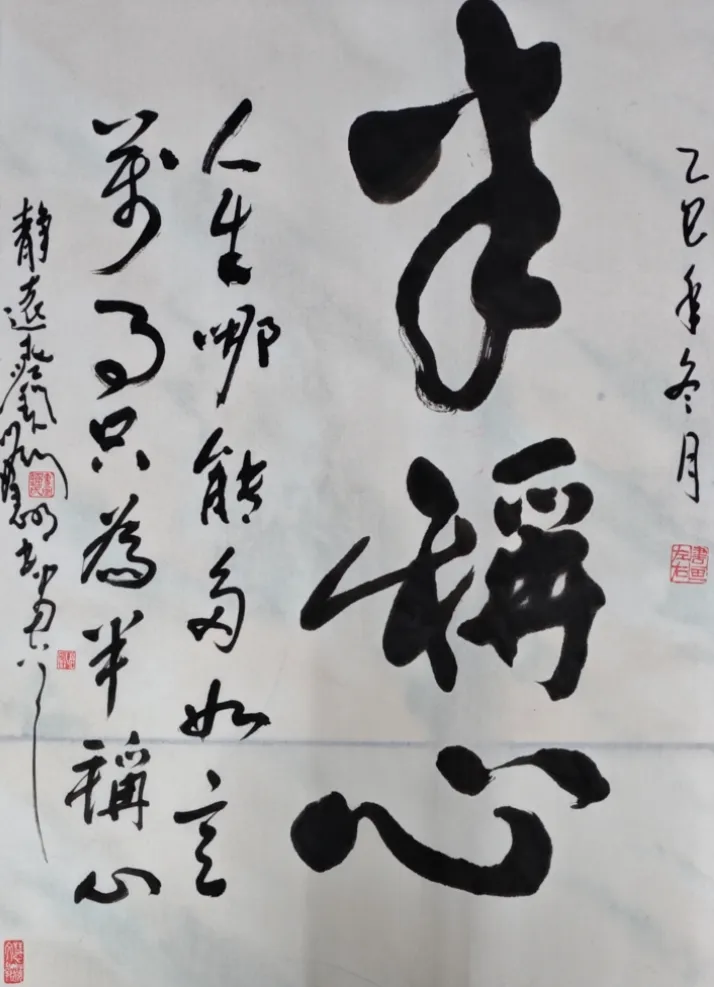 乙巳年冬月
半稱心
人生哪能多如意
萬事只為半稱心
靜遠